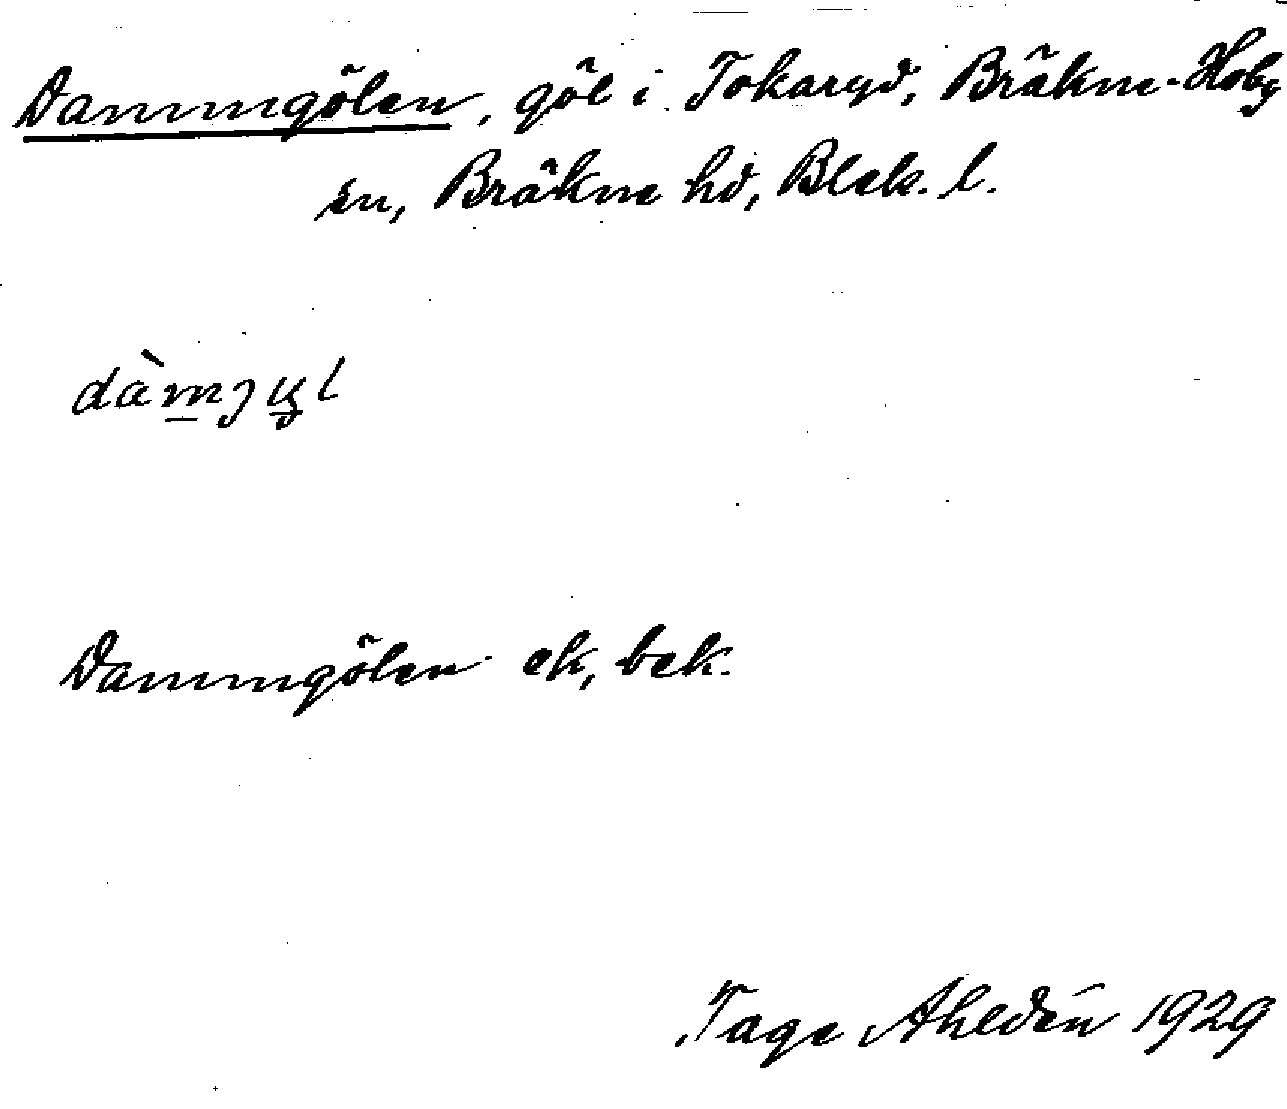 Dammgölen, göl i Tokaryd, Bräkne-Hoby
sn, Bräkne hd, Blek. l.
Dammgölen ek, bek.
Tage Ahldén 1929